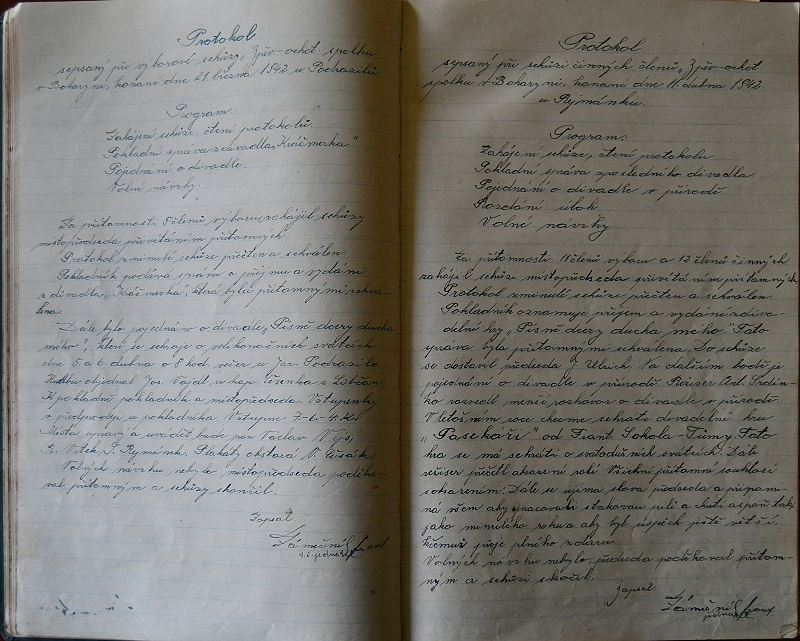 Protokol
sepsaný při výborové schůzi, Zpěv.-ochot. spolku
v Boharyni, konané dne 21 března 1942 u Podrazilů.
Program:
Zahájení schůze, čtení protokolů.
Pokladní správa z divadla „Kráčmerka"
Pojednání o divadle.
Volné návrhy.
Za přítomnosti členů výboru, zahájil schůzy
místopředseda přivítáním přítomných.
Protokol z minulé schůze přečten a schválen.
Pokladník podává správu o příjmu a vydání
z divadla „Kráčmerka", která byla přítomnými schvá-
lena.
Dále bylo pojednáno o divadle „Písně dcery ducha
mého", které se sehraje o velikonočních svátcích
dne 5 a 6 dubna o 8 hod. večer u Jar. Podrazila
Hudbu objednal Jos. Vojdl u kap. Těšenka z Libčan.
K pokladní pokladník a místopředseda. Vstupenky
v předprodeji u pokladníka. Vstupné 7.-6.-4.-K.
Místa upraví a uvádět bude pan Václav
Fr. Vítek, J. Rymánek. Plakáty obstará V.
Volných návrhů nebylo, místopředseda poděko-
val přítomným a schůzy skončil.
Zapsal
Zámečník Frant
t.č. jednatel
Protokol
sepsaný při schůzi činných členů „Zpěv.-ochot.
spolku v Boharyni, konané dne 11. dubna 1942
u Rymánků.
Program:
Zahájení schůze, čtení protokolu.
Pokladní správa z posledního divadla.
Pojednání o divadle v přírodě.
Rozdání uloh.
Volné návrhy.
Za přítomnosti 11 členů výboru a 12 členů činných
zahájil schůzi místopředseda přivítáním přítomných
Protokol z minulé schůze přečten a schválen.
Pokladník oznamuje příjem a vydání z diva-
delní hry „Písně dcery ducha mého." Tato
správa byla přítomnými schválena. Do schůze
se dostavil předseda J. Ulrich. Na dalším bodě je
pojednání o divadle v přírodě. Režiser Ant. Srdín-
ko rozvedl menší rozhovor o divadle v přírodě.
V letošním roce chceme sehráti divadelní hru
„Pasekáři" od Frant. Sokola-Tůmy. Tato
hra se má sehráti o svatodušních svátcích. Dále
režiser přečetl obsazení rolí. Všichni přítomní souhlasí
s obsazením. Dále se ujímá slova předseda a připomí-
ná všem aby spracovali s takovou pílí a chutí aspoň tak
jako minulého roku a aby byl úspěch ještě větší.
K čemuž přeje plného zdaru.
Volných návrhu nebylo, předseda poděkoval přítom-
ným a schůzi skončil.
Zapsal:
Zámečník Frant.
jednatel